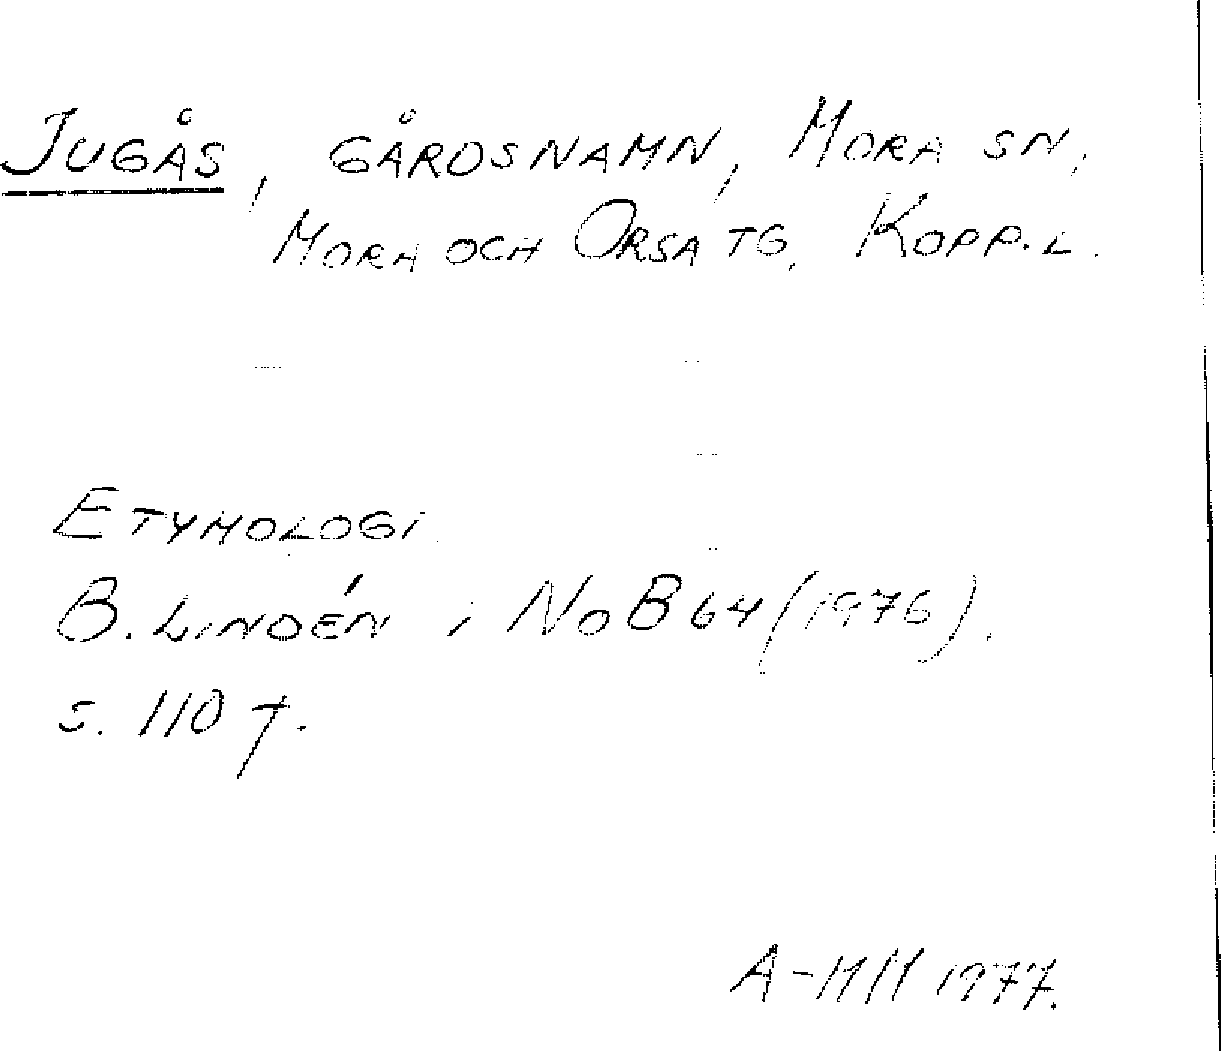 JUGÅS, GÅRDSNAMN, MORA SN,
MORA OCH ORSA TG. KOPP.L.
ETYMOLOGI
B. LINDÉN i NoB 64 (1976).
s. 110 f.
A-MH 1977.